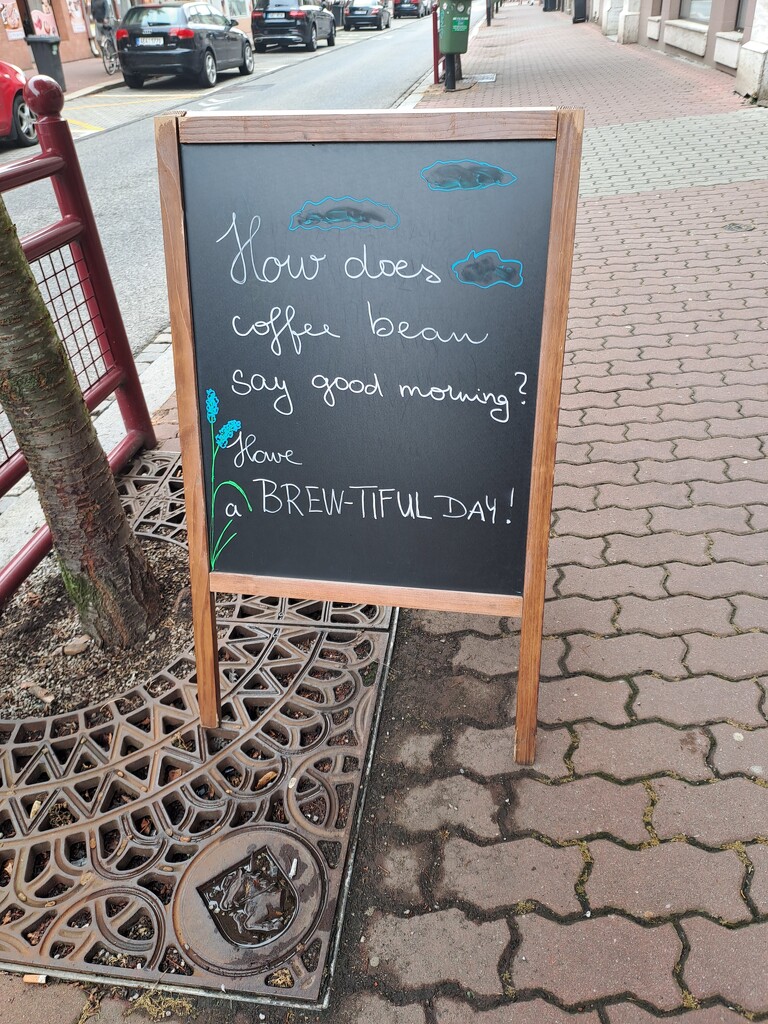 How does
coffee bean
say good morning?
Have
a BREW-TIFUL DAY!